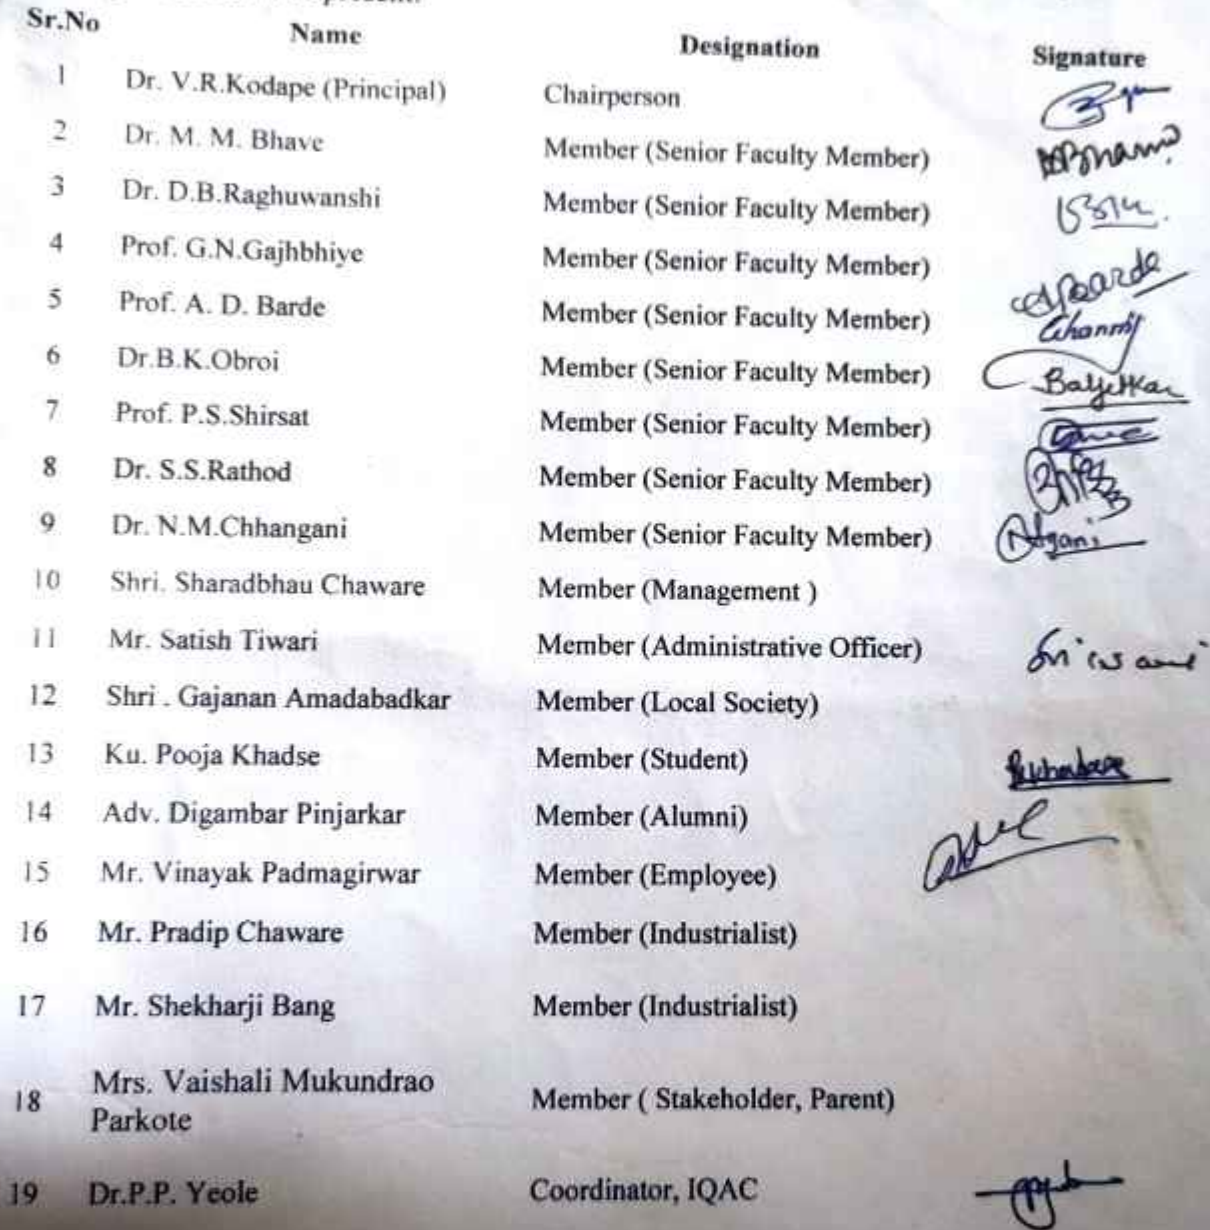 present.
Sr.No Name Designation Signature
1 Dr. V.R.Kodape (Principal) Chairperson
2 Dr. M. M. Bhave Member (Senior Faculty Member)
3 Dr. D.B.Raghuwanshi Member (Senior Faculty Member)
4 Prof. G.N.Gajhbhiye Member (Senior Faculty Member)
5 Prof. A. D. Barde Member (Senior Faculty Member)
6 Dr.B.K.Obroi Member (Senior Faculty Member)
7 Prof. P.S.Shirsat Member (Senior Faculty Member)
8 Dr. S.S.Rathod Member (Senior Faculty Member)
9 Dr. N.M.Chhangani Member (Senior Faculty Member)
10 Shri. Sharadbhau Chaware Member (Management )
11 Mr. Satish Tiwari Member (Administrative Officer)
12 Shri . Gajanan Amadabadkar Member (Local Society)
13 Ku. Pooja Khadse Member (Student)
14 Adv. Digambar Pinjarkar Member (Alumni)
15 Mr. Vinayak Padmagirwar Member (Employee)
16 Mr. Pradip Chaware Member (Industrialist)
17 Mr. Shekharji Bang Member (Industrialist)
18 Mrs. Vaishali Mukundrao Member ( Stakeholder, Parent)
Parkote
19 Dr.P.P. Yeole Coordinator, IQAC